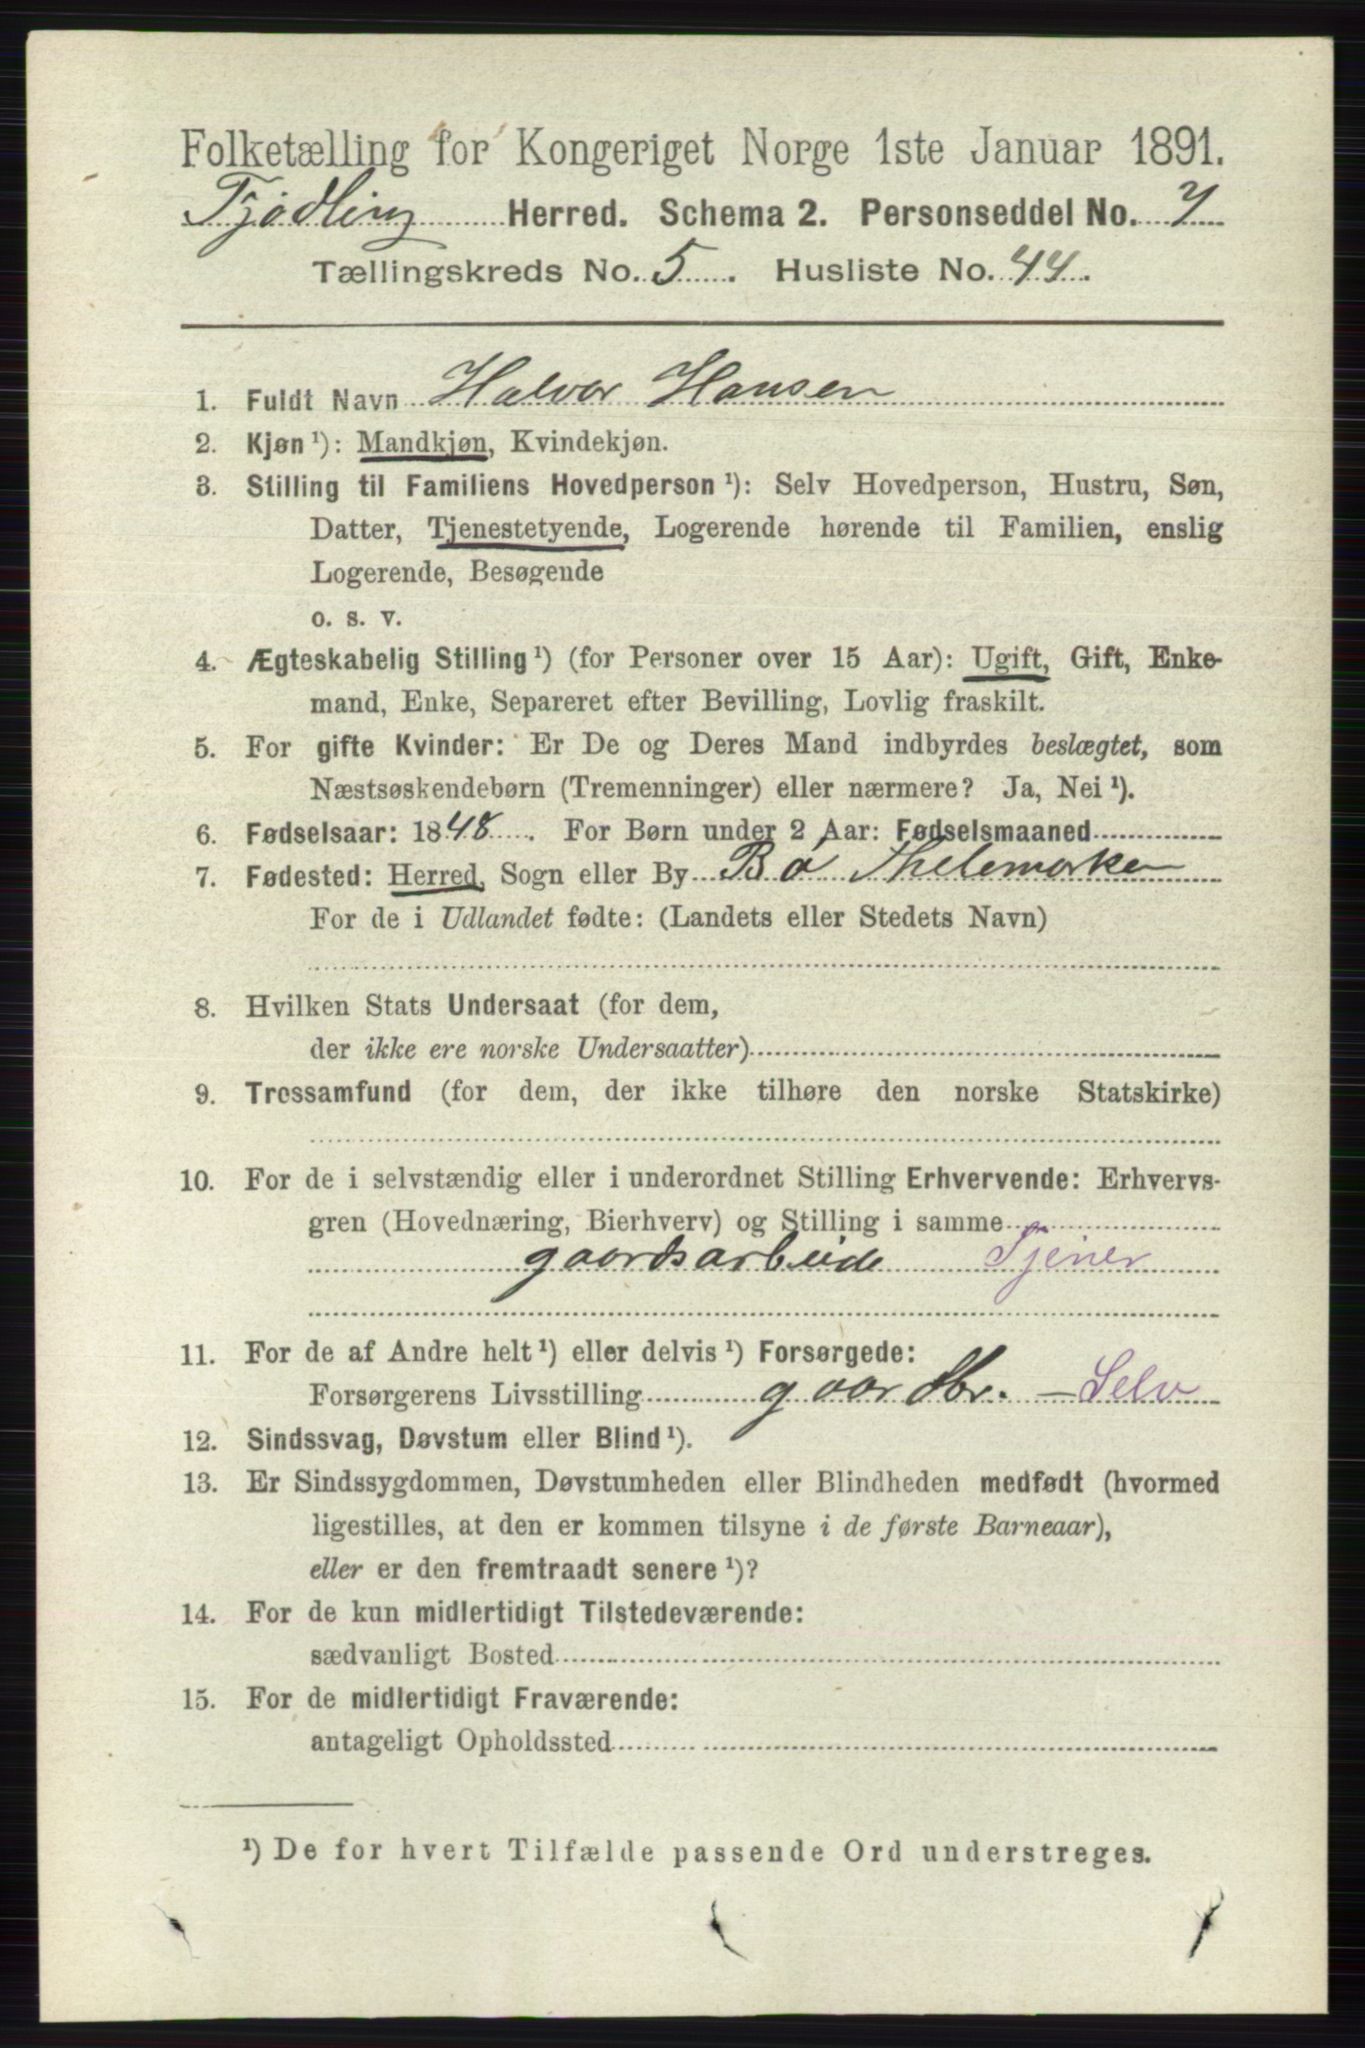 Folketælling for Kongeriget Norge 1ste Januar 1891.
Tjødling Herred. Schema 2. Personseddel No. 7
Tællingskreds No. 5. Husliste No. 44.
1. Fuldt Navn Halvor Hansen
2. Kjøn¹): Mandkjøn, Kvindekjøn.
3. Stilling til Familiens Hovedperson¹): Selv Hovedperson, Hustru, Søn,
Datter, Tjenestetyende, Logerende hørende til Familien, enslig
Logerende, Besøgende
o. s. v.
4. Ægteskabelig Stilling¹) (for Personer over 15 Aar): Ugift, Gift, Enke-
mand, Enke, Separeret efter Bevilling, Lovlig fraskilt.
5. For gifte Kvinder: Er De og Deres Mand indbyrdes beslægtet, som
Næstsøskendebørn (Tremenninger) eller nærmere? Ja, Nei¹).
6. Fødselsaar: 1848. For Børn under 2 Aar: Fødselsmaaned
7. Fødested: Herred, Sogn eller By Bø Thelemarken
For de i Udlandet fødte: (Landets eller Stedets Navn)
8. Hvilken Stats Undersaat (for dem,
der ikke ere norske Undersaatter)
9. Trossamfund (for dem, der ikke tilhøre den norske Statskirke)
10. For de i selvstændig eller i underordnet Stilling Erhvervende: Erhvervs-
gren (Hovednæring, Bierhverv) og Stilling i samme
gaardsarbeide Tjener
11. For de af Andre helt¹) eller delvis¹) Forsørgede:
Forsørgerens Livsstilling gaardbr. - Selv
12. Sindssvag, Døvstum eller Blind¹).
13. Er Sindssygdommen, Døvstumheden eller Blindheden medfødt (hvormed
ligestilles, at den er kommen tilsyne i de første Barneaar),
eller er den fremtraadt senere¹)?
14. For de kun midlertidigt Tilstedeværende:
sædvanligt Bosted
15. For de midlertidigt Fraværende:
antageligt Opholdssted
¹) De for hvert Tilfælde passende Ord understreges.